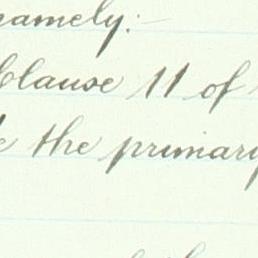 namely:-
Clause 11 of
the primary